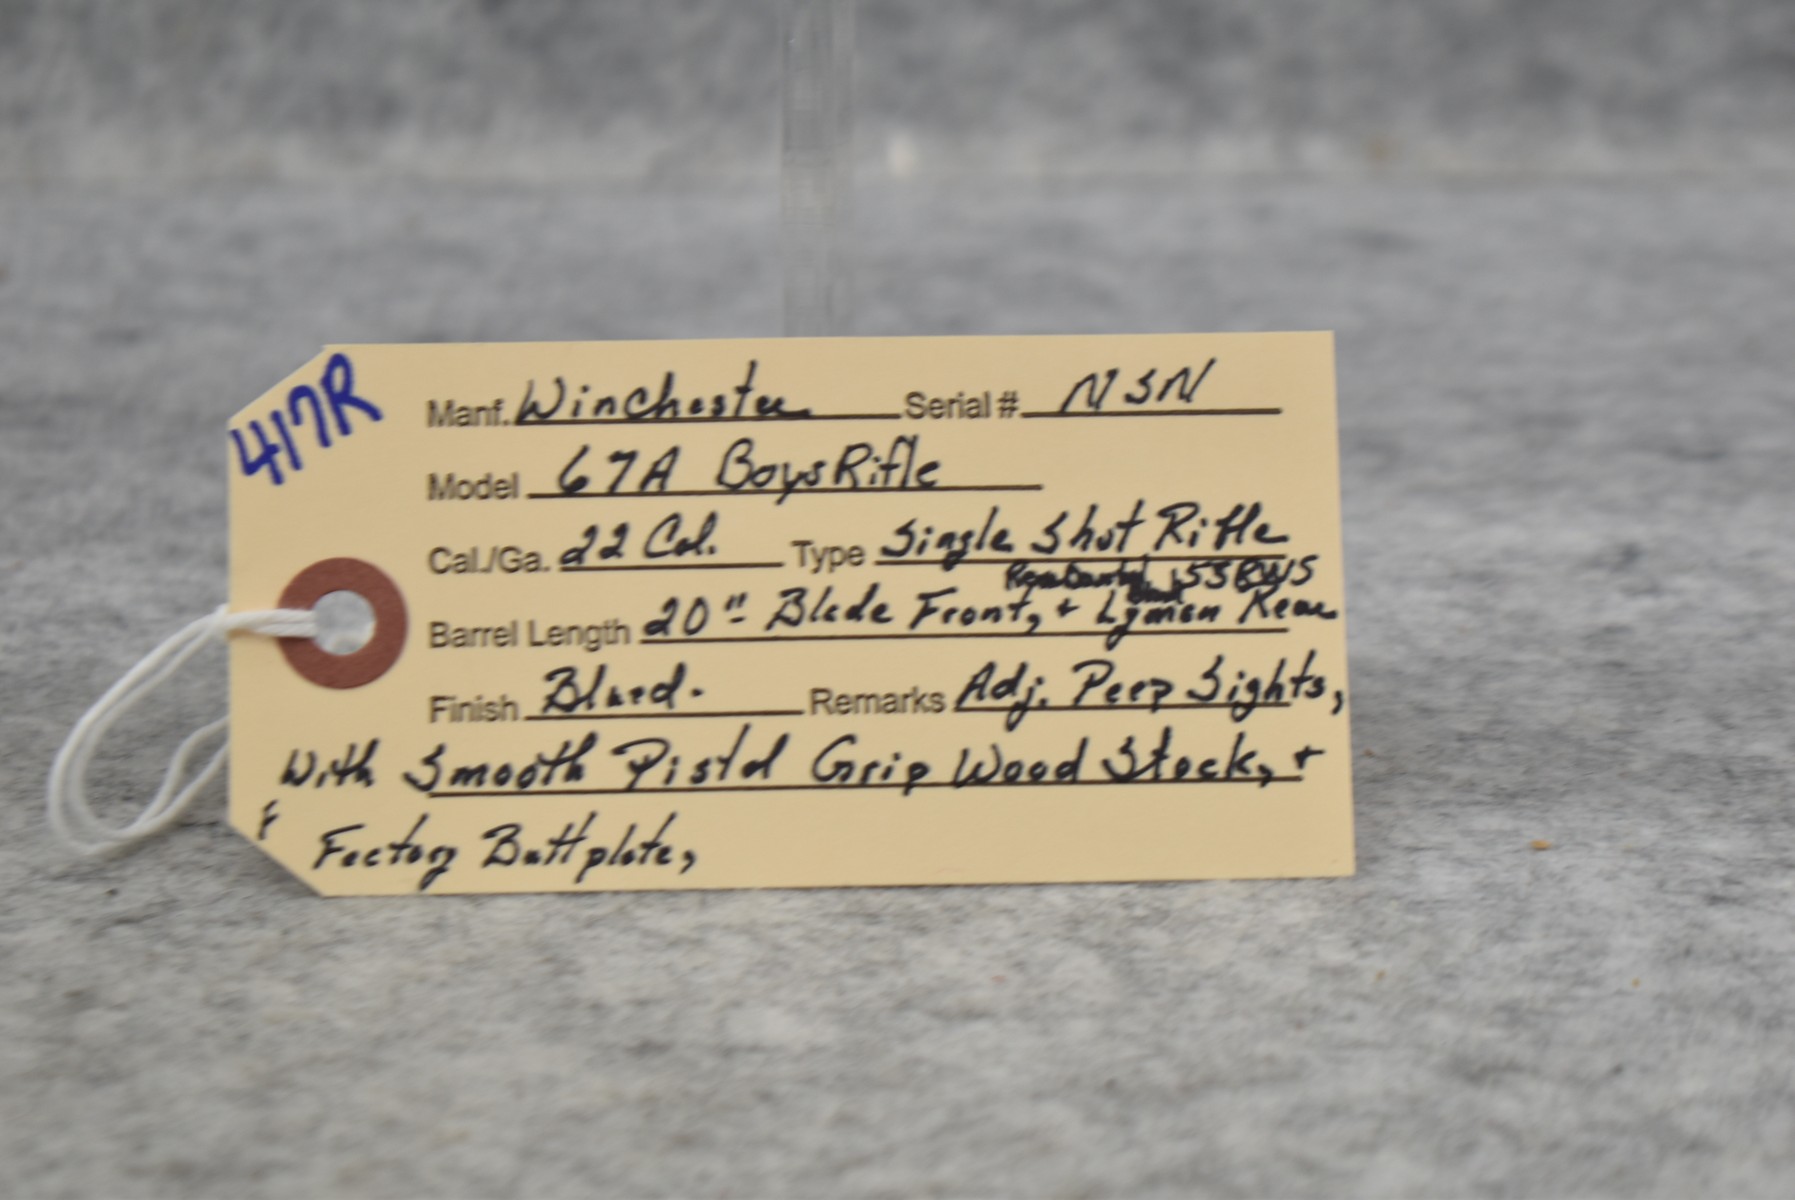 417R
Manf. Winchester Serial # NSN
Model 67A Boys Rifle
Cal./Ga. 22 Cal. Type Single Shot Rifle
55 BWS
Barrel Length 20" Blade Front, + Lyman Rear
Finish Blued. Remarks Adj. Peep Sights,
With Smooth Pistol Grip Wood Stock, +
Factory Buttplate,